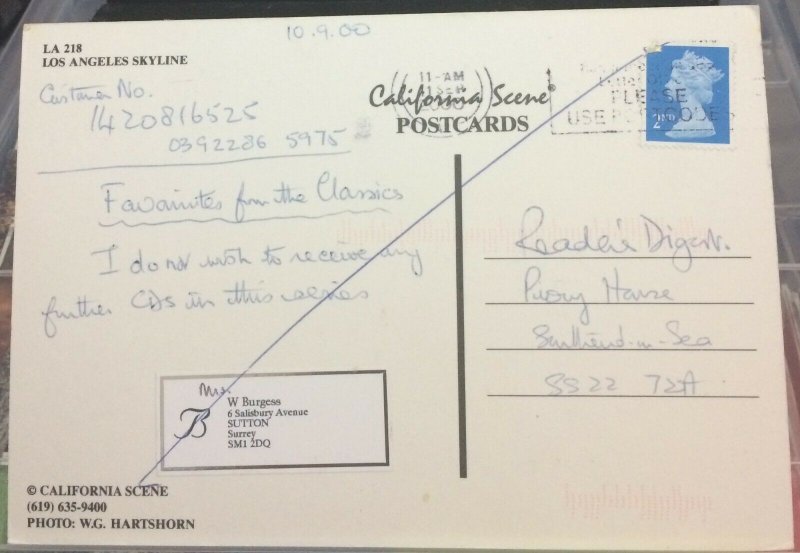 10.9.00
LA 218
LOS ANGELES SKYLINE
Customer No.
1420816525
0392286 5975
Favourites from the Classics
I do not wish to receive any
further CDs in this series
Mrs.
W Burgess
6 Salisbury Avenue
SUTTON
Surrey
SM1 2DQ
B
© CALIFORNIA SCENE
(619) 635-9400
PHOTO: W.G. HARTSHORN
California Scene®
POSTCARDS
11-AM
PLEASE
USE POSTCODE
2ND
Reader's Digest.
House
Southend-on-Sea
SS22 7ZA